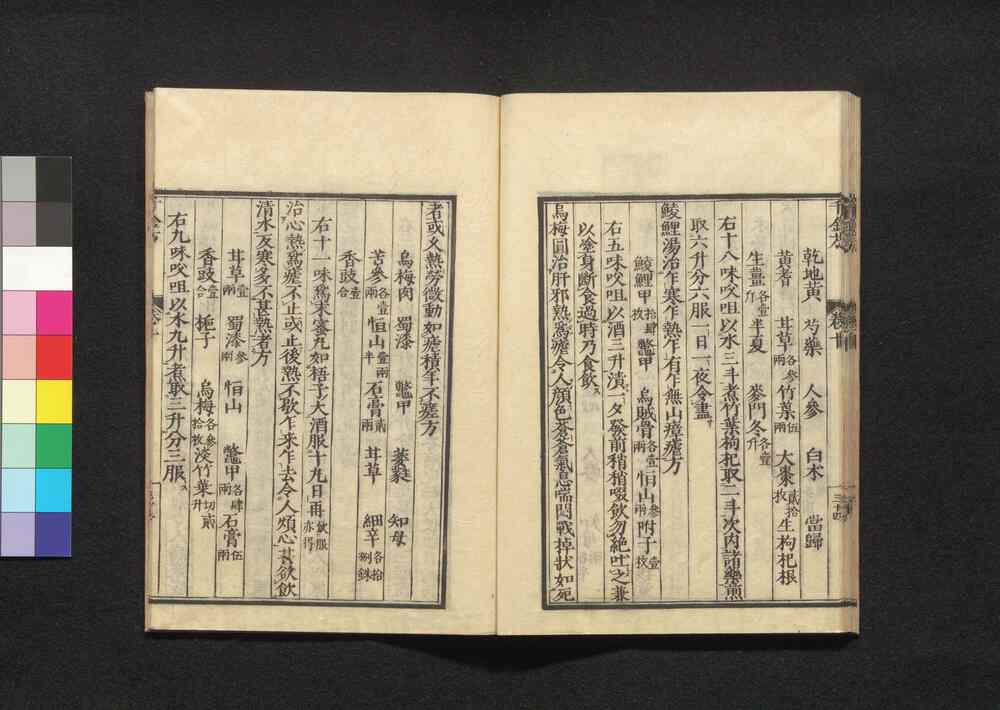 千金方
卷十
乾地黃 芍藥 人參 白朮 當歸
黃耆 甘草各參兩 竹葉伍兩 大棗貳拾枚 生枸杞根
生薑各壹斤 半夏 麥門冬各壹升
右十八味㕮咀以水三斗煮竹葉枸杞取二斗次內諸藥煎
取六升分六服一日一夜令盡
鯪鯉湯治乍寒乍熱乍有乍無山瘴瘧方
鯪鯉甲拾肆枚 鼈甲 烏賊骨各壹兩 恒山參兩 附子壹枚
右五味㕮咀以酒三升漬一夕發前稍稍啜飲勿絕吐之兼
以塗身斷食過時乃食飲
烏梅圓治肝邪熱爲瘧令人顏色蒼蒼氣息喘悶戰掉狀如死
者或久熱勞微動如瘧積年不瘥方
烏梅肉 蜀漆 鼈甲 葳蕤 知母
苦參各壹兩 恒山壹兩半 石膏貳兩 甘草 細辛各拾捌銖
香豉壹合
右十一味爲末蜜丸如梧子大酒服十丸日再飲服亦得
治心熱爲瘧不止或止後熱不歇乍來乍去令人煩心甚欲飲
清水反寒多不甚熱者方
甘草壹兩 蜀漆參兩 恒山 鼈甲各肆兩 石膏伍兩
香豉壹合 梔子 烏梅各參拾枚 淡竹葉切貳升
右九味㕮咀以水九升煮取三升分三服